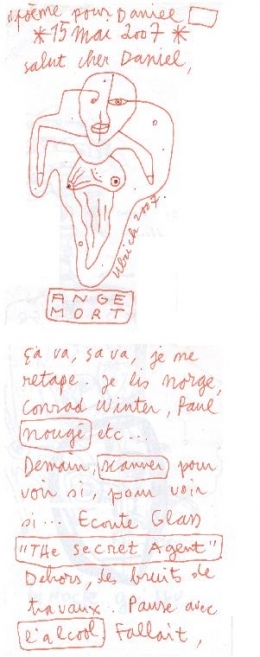 poème pour Daniel
*15 mai 2007*
salut cher Daniel,
Ulrich 2007.
ANGE
MORT
ça va, sa va, je me
retape. Je lis Norge,
Conrad Winter, Paul
nougé etc...
Demain, scanner pour
voir si, pour voir
si... Ecoute Glass
"THe secret Agent"
Dehors, des bruits de
travaux. Pause avec
l'alcool. Fallait,